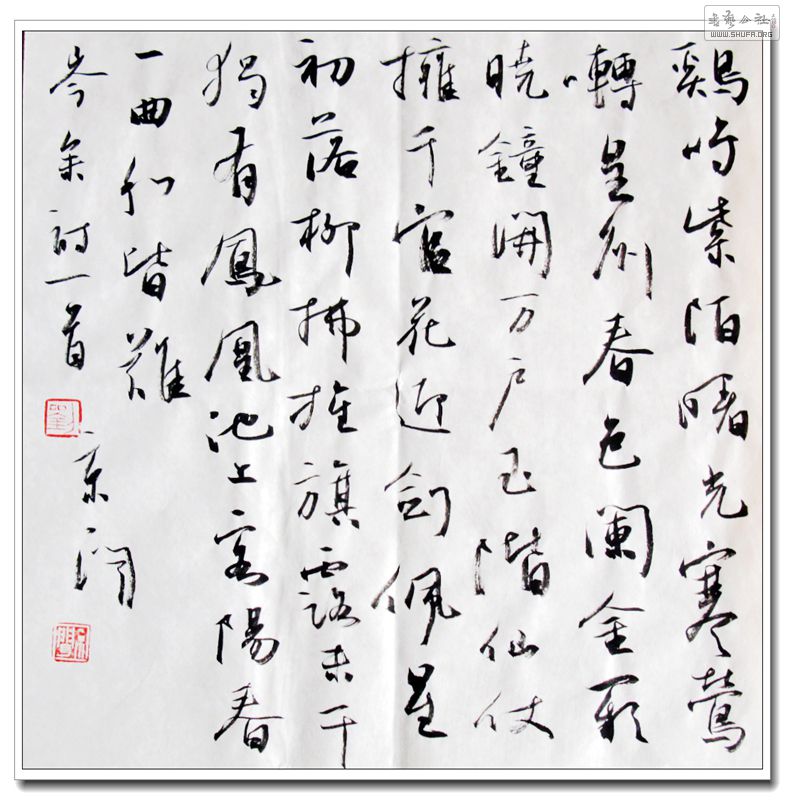 書藝公社
WWW.SHUFA.ORG
鷄鳴紫陌曙光寒鶯
囀皇州春色闌金闕
曉鐘開万户玉階仙仗
擁千官花迎劍佩星
初落柳拂旌旗露未干
獨有鳳凰池上客陽春
一曲和皆難
岑参詩一首
京潤